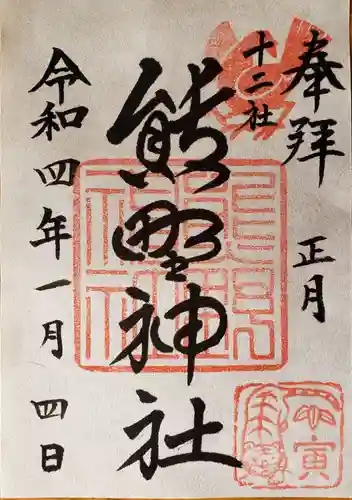 奉拝
正月
十二社
熊野神社
令和四年一月四日